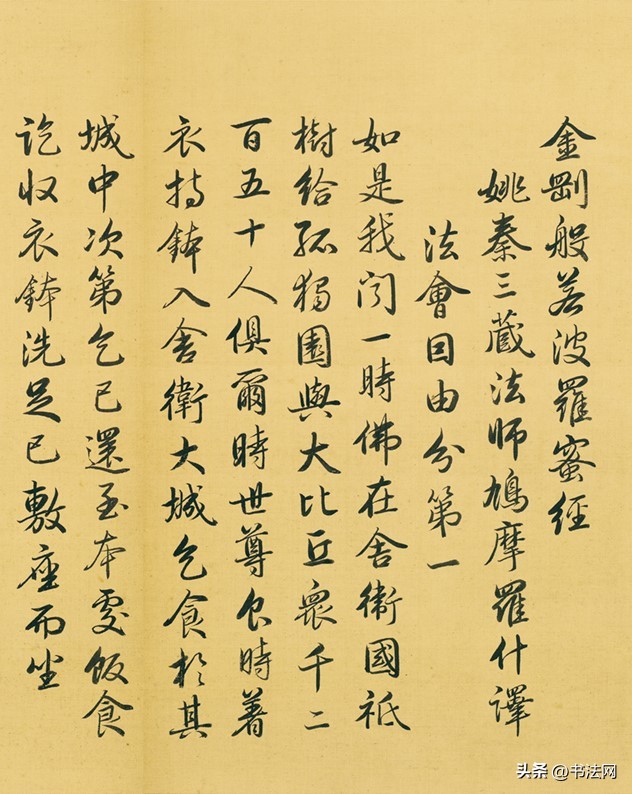 金剛般若波羅蜜經
姚秦三藏法師鳩摩羅什譯
法會因由分第一
如是我聞一時佛在舍衛國祇
樹給孤獨園與大比丘衆千二
百五十人俱爾時世尊食時着
衣持鉢入舍衛大城乞食於其
城中次第乞已還至本處飯食
訖收衣鉢洗足已敷座而坐
头条 @书法网